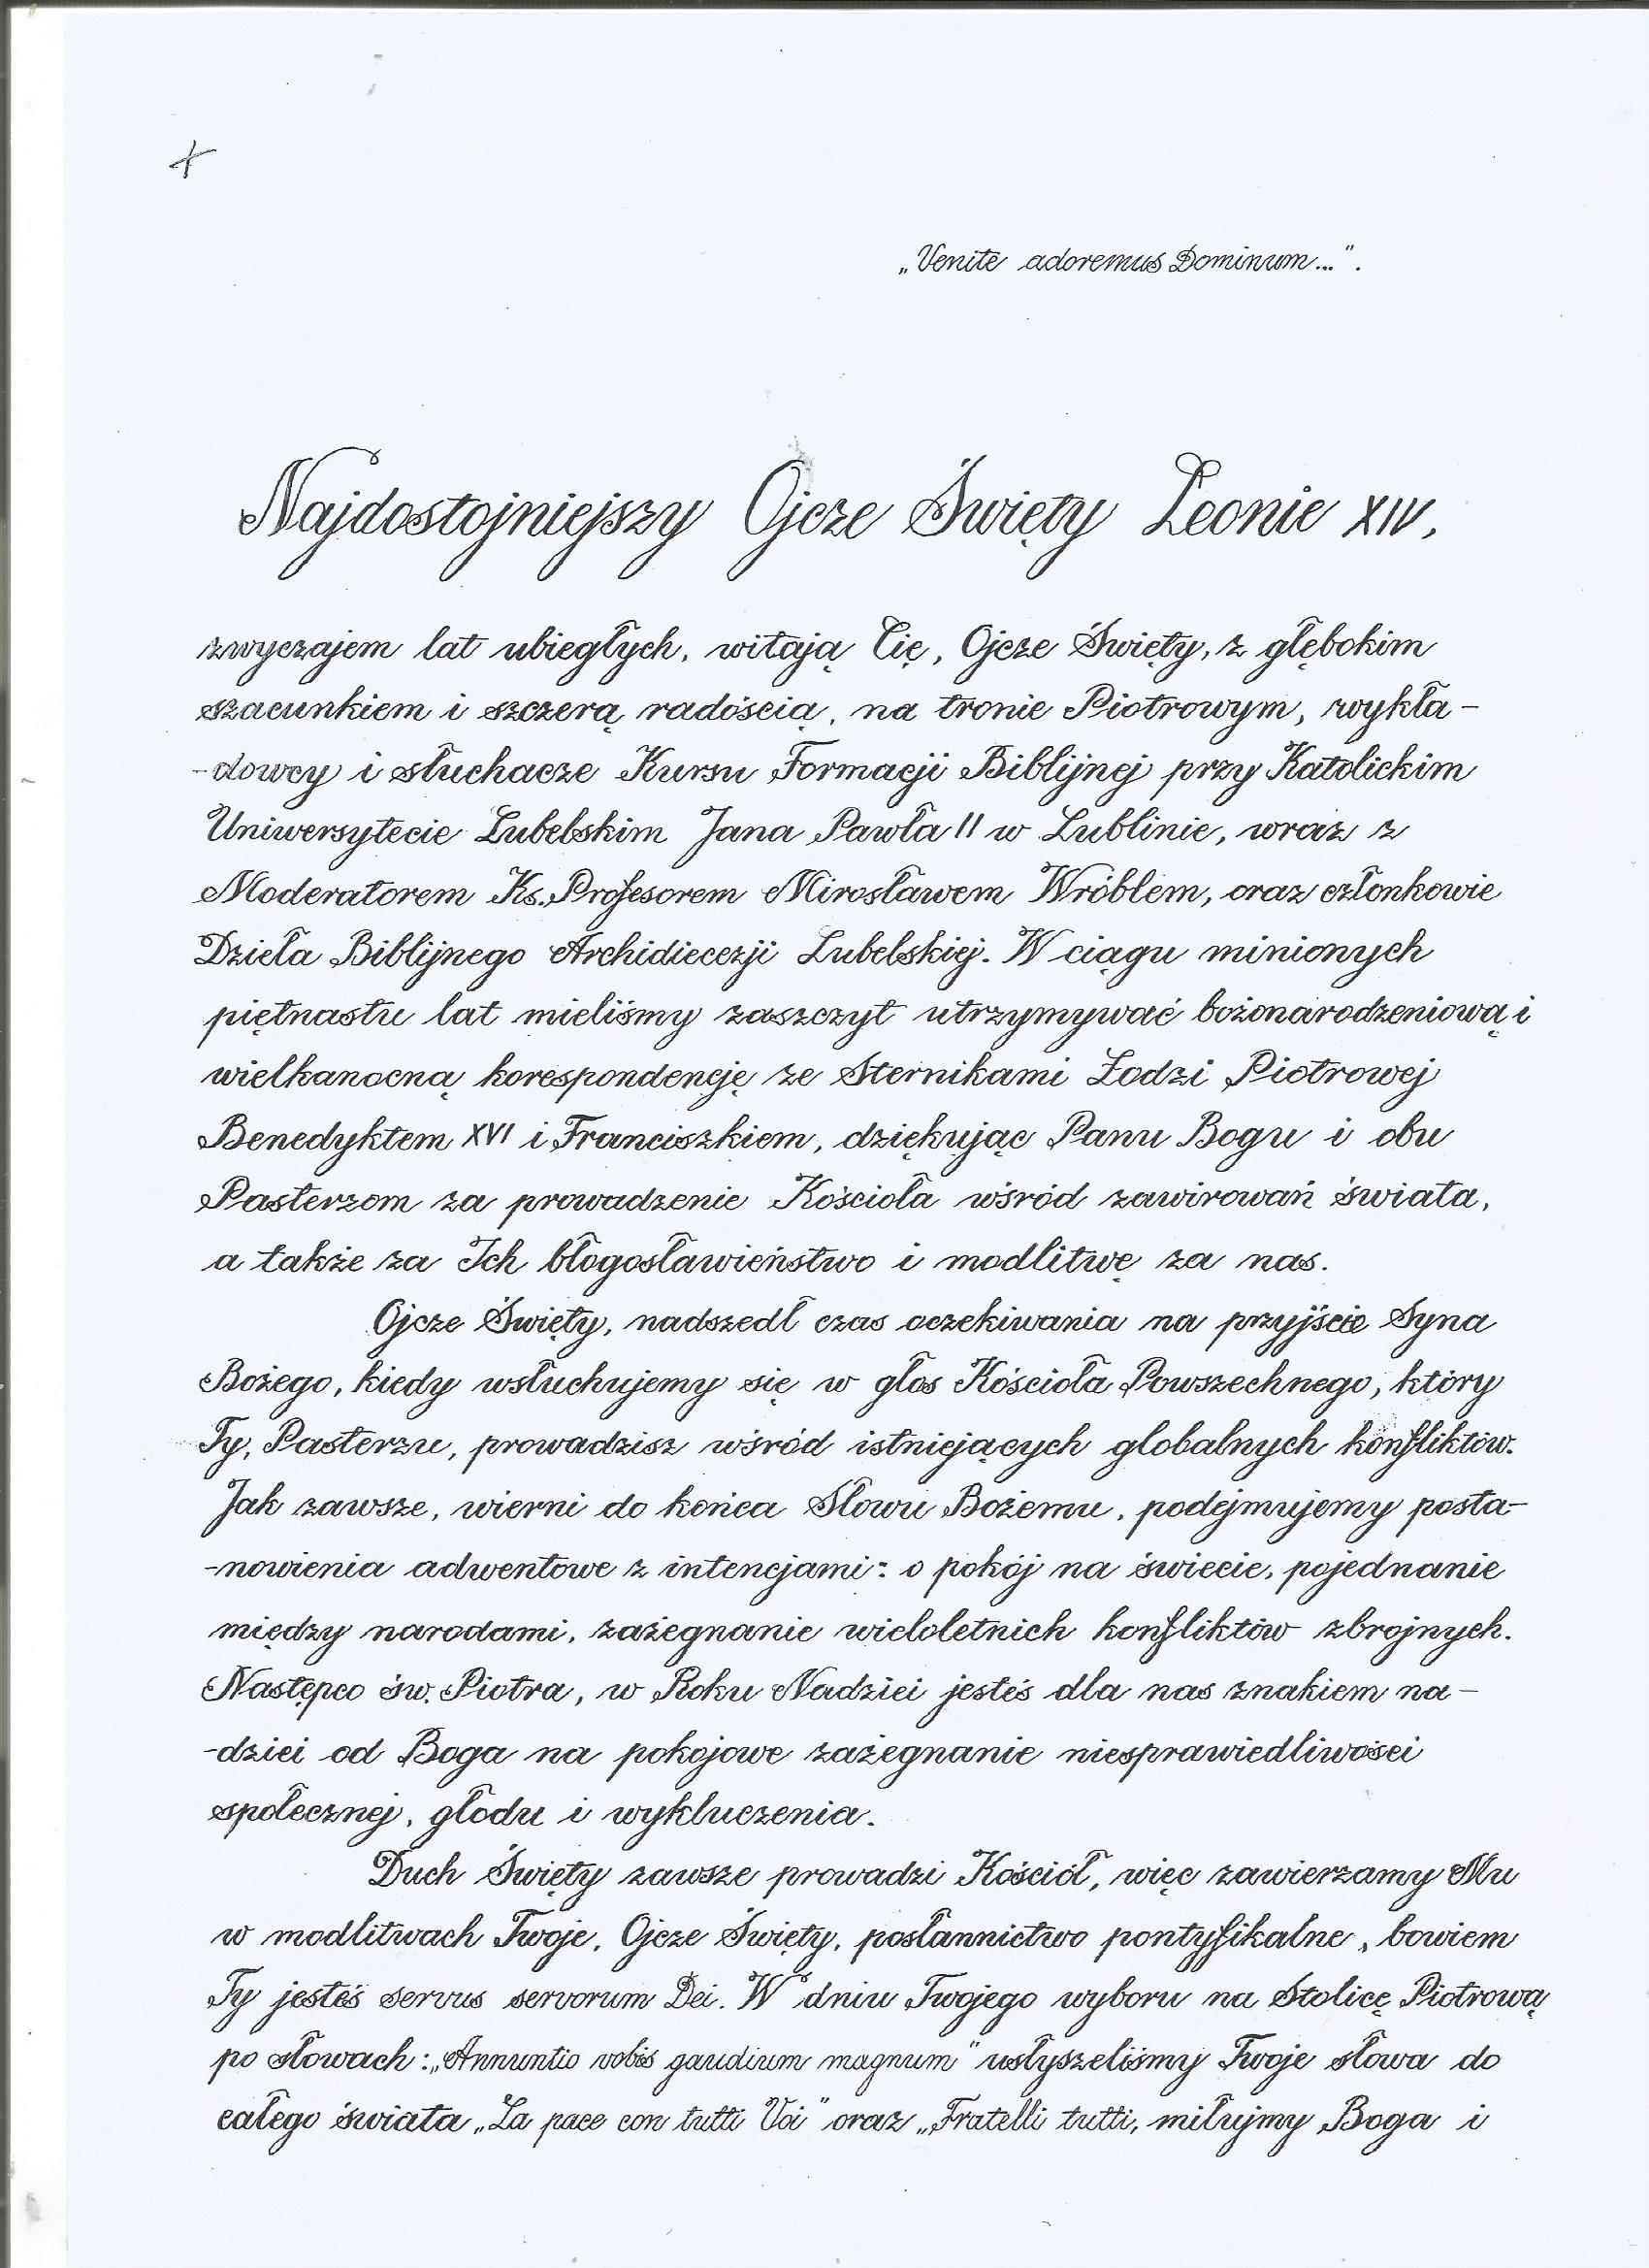 „Venite adoremus Dominum...”.
Najdostojniejszy Ojcze Święty Leonie XIV,
zwyczajem lat ubiegłych, witają Cię, Ojcze Święty, z głębokim
szacunkiem i szczerą radością, na tronie Piotrowym, wykła-
-dowcy i słuchacze Kursu Formacji Biblijnej przy Katolickim
Uniwersytecie Lubelskim Jana Pawła II w Lublinie, wraz z
Moderatorem Ks. Profesorem Mirosławem Wróblem, oraz członkowie
Dzieła Biblijnego Archidiecezji Lubelskiej. W ciągu minionych
piętnastu lat mieliśmy zaszczyt utrzymywać bożonarodzeniową i
wielkanocną korespondencję ze Sternikami Łodzi Piotrowej
Benedyktem XVI i Franciszkiem, dziękując Panu Bogu i obu
Pasterzom za prowadzenie Kościoła wśród zawirowań świata,
a także za Ich błogosławieństwo i modlitwę za nas.
Ojcze Święty, nadszedł czas oczekiwania na przyjście Syna
Bożego, kiedy wsłuchujemy się w głos Kościoła Powszechnego, który
Ty, Pasterzu, prowadzisz wśród istniejących globalnych konfliktów.
Jak zawsze, wierni do końca Słowu Bożemu, podejmujemy posta-
-nowienia adwentowe z intencjami: o pokój na świecie, pojednanie
między narodami, zażegnanie wieloletnich konfliktów zbrojnych.
Następco św. Piotra, w Roku Nadziei jesteś dla nas znakiem na-
-dziei od Boga na pokojowe zażegnanie niesprawiedliwości
społecznej, głodu i wykluczenia.
Duch Święty zawsze prowadzi Kościół, więc zawierzamy Mu
w modlitwach Twoje, Ojcze Święty, posłannictwo pontyfikalne, bowiem
Ty jesteś servus servorum Dei. W dniu Twojego wyboru na Stolicę Piotrową
po słowach: „Annuntio vobis gaudium magnum” usłyszeliśmy Twoje słowa do
całego świata „La pace con tutti Voi” oraz „Fratelli tutti, miłujmy Boga i